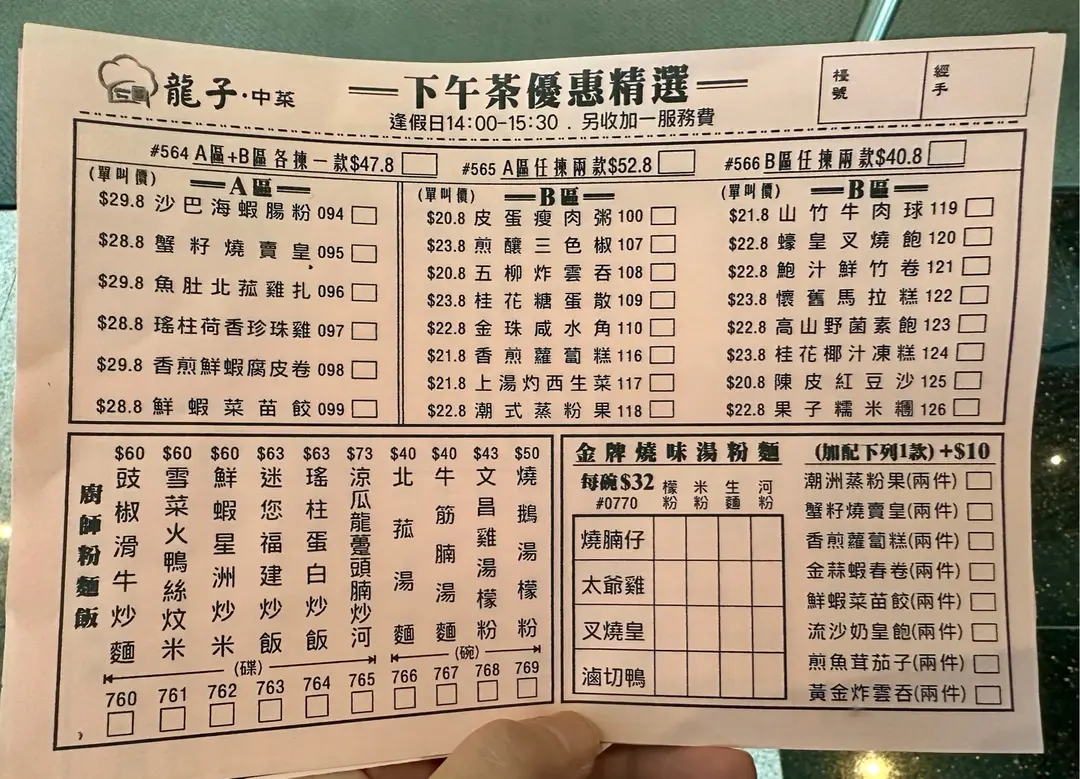 龍子·中菜
下午茶優惠精選
逢假日14:00-15:30 . 另收加一服務費
檯號
經手
#564 A區+B區各揀一款$47.8
#565 A區任揀兩款$52.8
#566 B區任揀兩款$40.8
(單叫價) A區
$29.8 沙巴海蝦腸粉 094
$28.8 蟹籽燒賣皇 095
$29.8 魚肚北菰雞扎 096
$28.8 瑤柱荷香珍珠雞 097
$29.8 香煎鮮蝦腐皮卷 098
$28.8 鮮蝦菜苗餃 099
(單叫價) B區
$20.8 皮蛋瘦肉粥 100
$23.8 煎釀三色椒 107
$20.8 五柳炸雲吞 108
$23.8 桂花糖蛋散 109
$22.8 金珠咸水角 110
$21.8 香煎蘿蔔糕 116
$21.8 上湯灼西生菜 117
$22.8 潮式蒸粉果 118
(單叫價) B區
$21.8 山竹牛肉球 119
$22.8 蠔皇叉燒飽 120
$22.8 鮑汁鮮竹卷 121
$23.8 懷舊馬拉糕 122
$22.8 高山野菌素飽 123
$23.8 桂花椰汁凍糕 124
$20.8 陳皮紅豆沙 125
$22.8 果子糯米糰 126
廚師粉麵飯
$60 豉椒滑牛炒麵 760
$60 雪菜火鴨絲炆米 761
$60 鮮蝦星洲炒米 762
$63 迷您福建炒飯 763
$63 瑤柱蛋白炒飯 764
$73 涼瓜龍躉頭腩炒河 765
(碟)
$40 北菰湯麵 766
$40 牛筋腩湯麵 767
$43 文昌雞湯檬粉 768
$50 燒鵝湯檬粉 769
(碗)
金牌燒味湯粉麵
每碗$32
#0770
檬粉 米粉 生麵 河粉
燒腩仔
太爺雞
叉燒皇
滷切鴨
(加配下列1款) +$10
潮洲蒸粉果(兩件)
蟹籽燒賣皇(兩件)
香煎蘿蔔糕(兩件)
金蒜蝦春卷(兩件)
鮮蝦菜苗餃(兩件)
流沙奶皇飽(兩件)
煎魚茸茄子(兩件)
黃金炸雲吞(兩件)